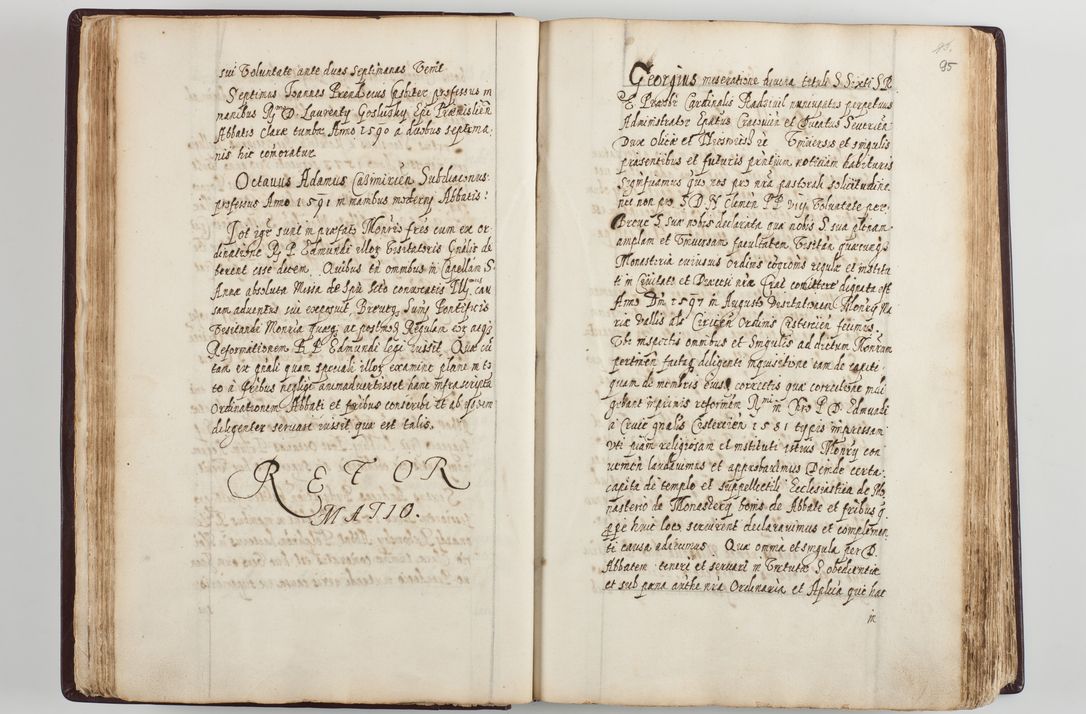 sui Voluntate ante duas Septimanas Venit
Septimus Joannes Prendocus Casbiter professus in
manibus R D. Laurenty Goslicky Epi Præmislien
Abbatis Claræ tumbæ Anno 1590 a duobus septima
nis hic comoratur
Octavus Adamus Casimirien Subdiaconus
professus Anno 1591 in manibus moderni Abbatis:
Tot igr sunt in præfato Monrio frēs cum ex or
dinatione R P. Edmundi illor Visitatoris Gnālis de
berent esse decem. Quibus tn omnibus in Capellam S.
Annæ absoluta Missa de Spū Scto convocatis Illmus cau
sam adventus sui exposuit, Breve Sumi Pontificis
Visitandi Monria quæq ac postmod Regulam eor atq
Reformationem R P Edmundi legi iussit Quæ cū
tam ex gnali quam speciali illor examine plane in to
to à fribus neglige animadvertisset hanc infrascripta
Ordinationem Abbati et fribus conscribi et ab eisdem
diligenter servare iussit quæ est talis.
REFOR
MATIO.
95
Georgius miseratione divina tituli S Sixti S R
E Præsbr Cardinalis Radziuil nuncupatus perpetuus
Administrator Epatus Cracovien et Ducatus Severien
Dux Olicæ et Nieswiesh &c Universis et singulis
præsentibus et futuris pntium notitiam habituris
Significamus quod nos pro nra pastorali solicitudine
nec non pro S D N Clemen PP viij Voluntate per
Breve S suæ nobis declarata qua nobis S sua plenam
amplam et Universam facultatem Visitan quæcunq
Monasteria cuiusvis Ordinis cogcionis regulæ et institu
ti in Civitate et Diæcesi nra Crac comittere dignata est
Anno Dni 1597 in Augusto Visitationem Monry Ma
riæ Vallis als Ciricen Ordinis Cistercien fecimus.
Ubi inspectis omnibus et Singulis ad dictum Monrium
pertinen factaq diligenti inquisitione tam de capite
quam de membris eius, correctis quæ correctione indi
gebant inprimis reformen Rmi in Chro P D. Edmundi
à Cruce gnalis Cistercien 1581 typis impressam
uti piam religiosam et instituti istius Monry con
venien laudavimus et approbavimus Deinde certa
capita de templo et suppellectili Ecclesiastica de Mo
nasterio de Monastery bonis de Abbate et fribus q
ppe huic loco servirent declaravimus et complemen
ti causa adiecimus. Quæ omnia et singula per D.
Abbatem teneri et servari in Virtute S obedientiæ
et sub pæna authe nra Ordinaria et Aplica qua hac
in